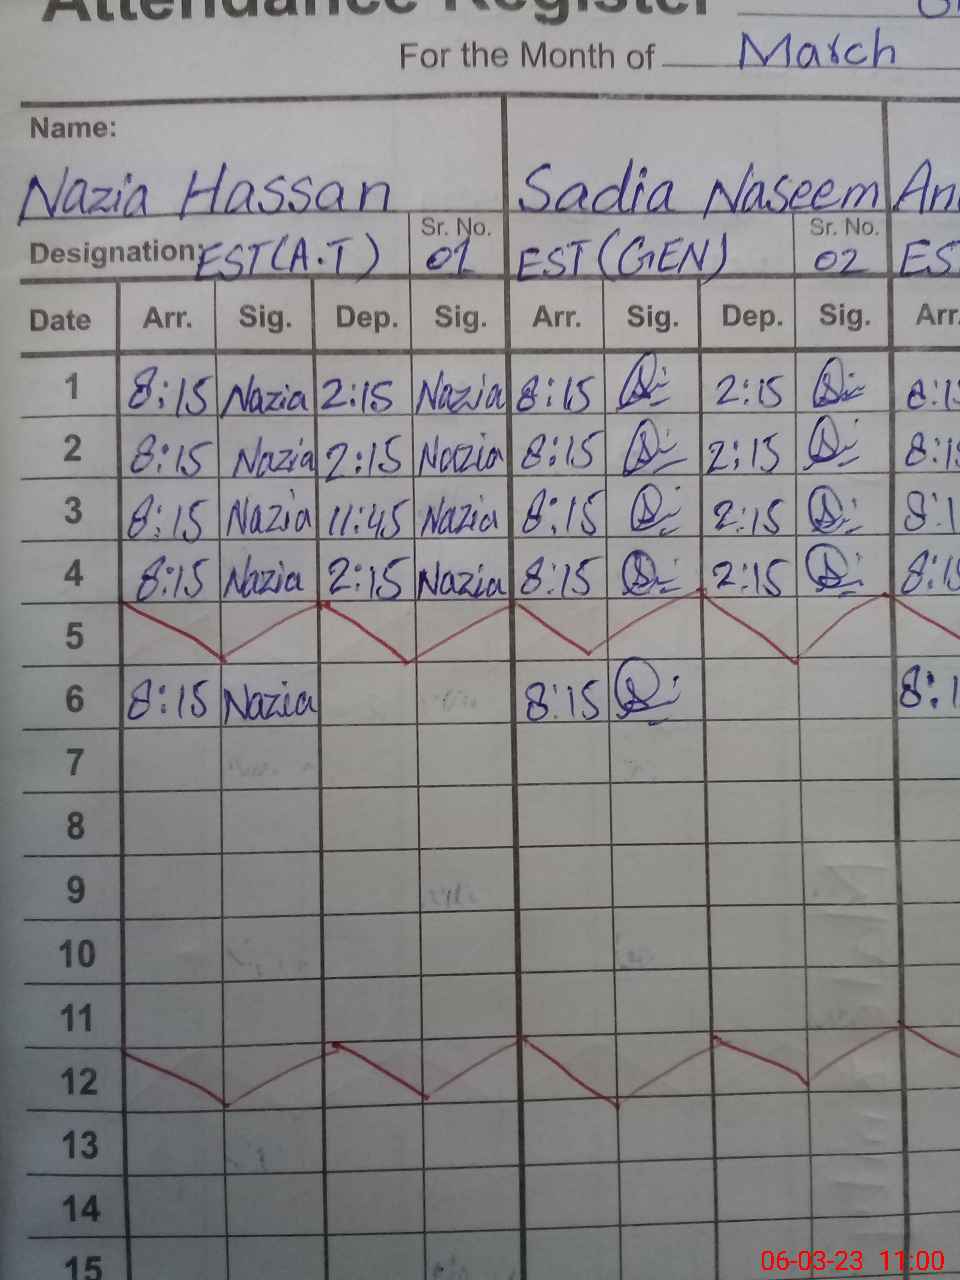 Attendance Register
For the Month of March
Name:
Nazia Hassan Sadia Naseem
Designation: EST(A.T) Sr. No. 01 EST (GEN) Sr. No. 02 ES
Date Arr. Sig. Dep. Sig. Arr. Sig. Dep. Sig. Arr.
1 8:15 Nazia 2:15 Nazia 8:15 2:15
2 8:15 Nazia 2:15 Nazia 8:15 2:15
3 8:15 Nazia 11:45 Nazia 8:15 2:15
4 8:15 Nazia 2:15 Nazia 8:15 2:15
5
6 8:15 Nazia 8:15
7
8
9
10
11
12
13
14
15
06-03-23 11:00